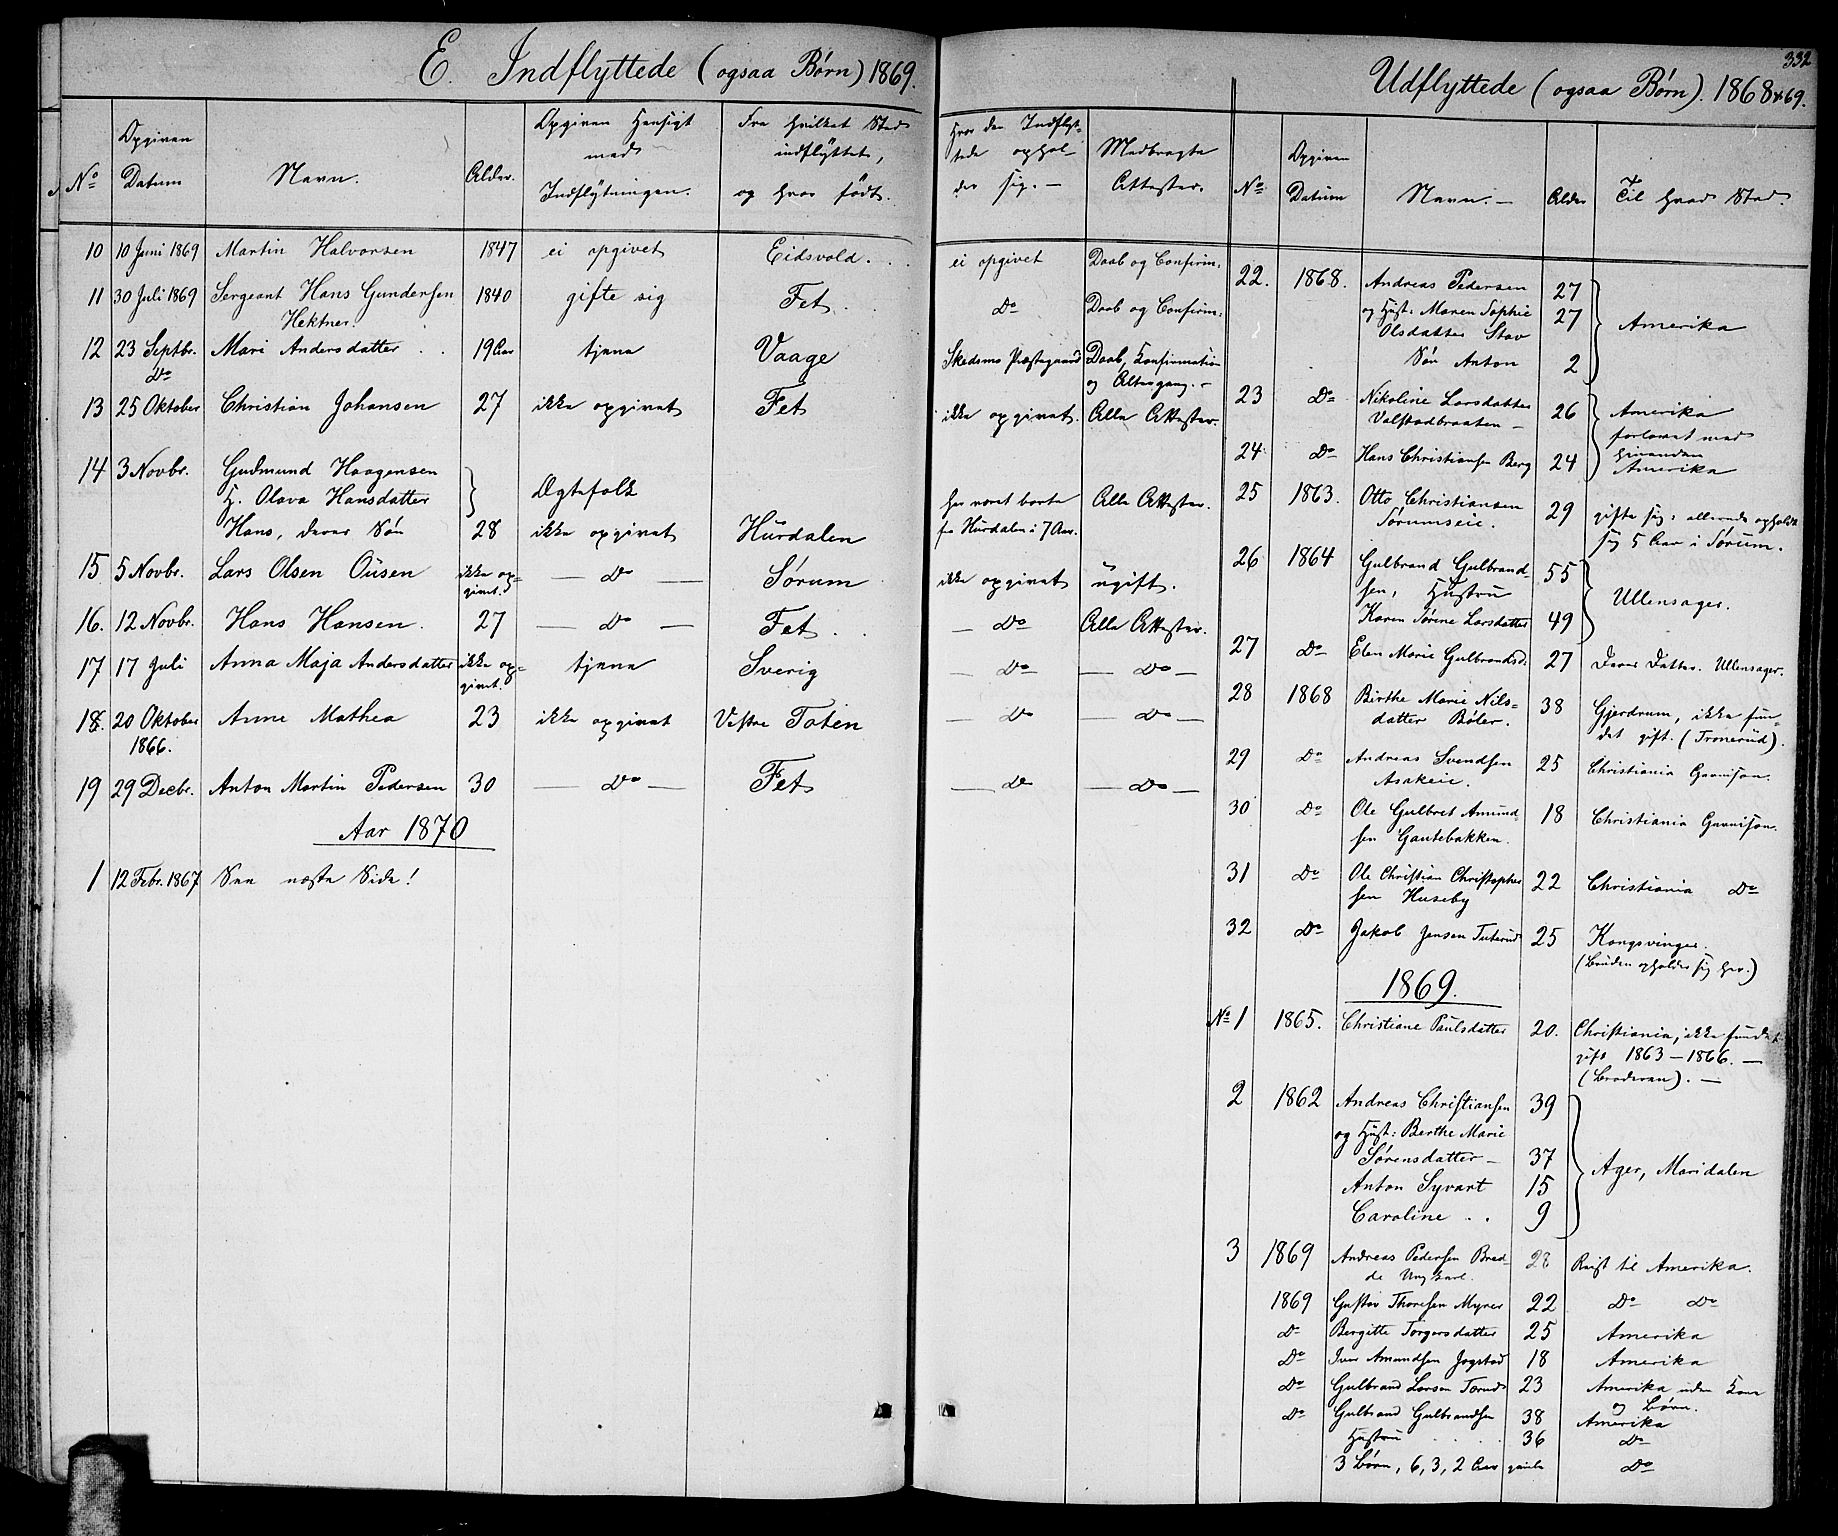 E. Indflyttede (ogsaa Børn) 1869.
No
Opgiven Datum
Navn.
Alder.
Opgiven Hensigt med Indflytningen.
Fra hvilket Sted indflyttet, og hvor født.
Hvor den Indflyttede opholder sig. —
Medbragte Attester.
10 10 Juni 1869 Martin Halvorsen 1847 ei opgivet Eidsvold. ei opgivet Daab og Confirm:
11 30 Juli 1869 Sergeant Hans Gundersen 1840 gifte sig Fet. Do Daab og Confirm:
Hektner.
12 23 Septbr. Mari Andersdatter 19 Aar tjene Vaage Skedsmo Præstegaard Daab, Konfirmation
Do og Altergang. –
13 25 Oktober Christian Johansen 27 ikke opgivet Fet ikke opgivet. Alle Attester.
14 3 Novbr. Gudmund Haagensen
H. Olava Hansdatter } Ægtefolk har været borte Alle Attester.
Hans, deres Søn 28 ikke opgivet Hurdalen fra Hurdalen i 7 Aar.
15 5 Novbr. Lars Olsen Ousen ikke opgivet. — Do — Sørum ikke opgivet ugift.
16. 12 Novbr. Hans Hansen. 27 — Do — Fet. — Do Alle Attester.
17 17 Juli Anna Maja Andersdatter ikke opgivet. tjene Sverig — Do — Do —
18. 20 Oktober Anne Mathea 23 ikke opgivet Vestre Toten — Do — Do —
1866.
19 29 Decbr. Anton Martin Pedersen 30 — Do — Fet — Do — Do —
Aar 1870
1 12 Febr. 1867 See næste Side!
332
Udflyttede (ogsaa Børn). 1868 & 69.
No
Opgiven Datum
Navn. —
Alder
Til hvad Sted.
22. 1868. Andreas Pedersen 27
og Hust: Maren Sophie 27
Olsdatter Stav } Amerika
Søn Anton 2
23 Do Nikoline Larsdatter 26 Amerika
Valstadbraaten – forlovet med
hinanden
24 Do Hans Christiansen Berg 24 Amerika
25 1863. Otto Christiansen 29 gifte sig: allerede opholdt
Sørumseie. sig 5 Aar i Sørum.
26 1864 Gulbrand Gulbrand- 55
sen, Hustru } Ullensager.
Karen Sørine Larsdatter 49
27 Do Elen Marie Gulbrandsd: 27 Deres Datter. Ullensager.
28 1868 Birthe Marie Nils- 38 Gjerdrum, ikke fun-
datter Bøler. det gift. (Tronerud).
29 Do Andreas Svendsen 25 Christiania Garnison.
Asakeie.
30 Do Ole Gulbret Amund- 18 Christiania Garnison.
sen Gautebakken.
31 Do Ole Christian Christopher 22 Christiania Do
sen Huseby
32 Do Jakob Jensen Tuterud 25 Kongsvinger.
(Bruden opholder sig her.)
1869.
No 1 1865. Christiane Paulsdatter 20. Christiania, ikke fundet
gift 1863 – 1866. —
2 1862 Andreas Christiansen 39
og Hust: Berthe Marie
Sørensdatter – 37 } Ager, Maridalen
Anton Syvart 15
Caroline . . 9
3 1869 Andreas Pedersen Bred- 28 Reist til Amerika.
de Ungkarl.
1869 Gustav Thoresen Myrer 22 Do Do
D– Bergitte Torgersdatter 25 Amerika
Do Iver Amundsen Jogstad 18 Amerika
Do Gulbrand Larsen Torud 23 Amerika uden Kone
og Børn.
Do Gulbrand Gulbrandsen 38 Amerika
Hustru 36 Do
3 Børn, 6, 3, 2 Aar gamle Do